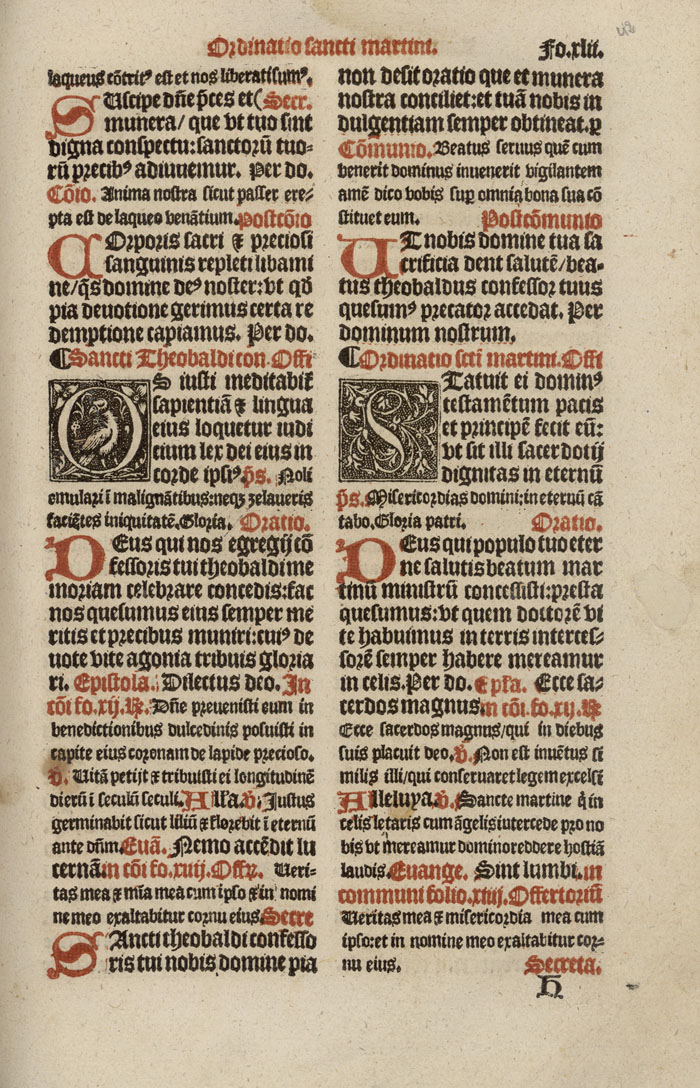 Ordinatio sancti martini.
Fo.xlii.
42
laqueus cōtritꝰ est et nos liberati sumꝰ.
SUscipe dn̄e p̄ces et (Secr.
munera/ que vt tuo sint
digna conspectu: sanctorū tuo-
rū precibꝰ adiuuemur. Per do.
Cōio. Anima nostra sicut passer ere-
pta est de laqueo venātium. Postcōio
COrporis sacri ⁊ preciosi
sanguinis repleti libami
ne/q̄s domine deꝰ noster: vt qd̄
pia deuotione gerimus certa re
demptione capiamus. Per do.
¶Sancti Theobaldi con. Offi
OS iusti meditabit᷑
sapientiā ⁊ lingua
eius loquetur iudi
cium lex dei eius in
corde ipsiꝰ. p̄s. Noli
emulari ī malignātibus: neqꝫ zelaueris
faciētes iniquitatē. Gloria. Oratio.
DEus qui nos egregij cō
fessoris tui theobaldi me
moriam celebrare concedis: fac
nos quesumus eius semper me
ritis et precibus muniri: cuiꝰ de
uote vite agonia tribuis gloria
ri. Epistola. Dilectus deo. In
cōi fo.xij. ℟. Dn̄e preuenisti eum in
benedictionibus dulcedinis posuisti in
capite eius coronam de lapide precioso.
℣. Uitā petijt ⁊ tribuisti ei longitudinē
dierū ī seculū seculi. Alľa. ℣. Justus
germinabit sicut liliū ⁊ florebit ī eternū
ante dn̄m. Euā. Nemo accēdit lu
cernā in cōi fo.xuij. Offr̄. Ueri-
tas mea ⁊ mīa mea cum ipso ⁊ in nomi
ne meo exaltabitur cornu eius. Secre
SAncti theobaldi confesso
ris tui nobis domine pia
non desit oratio que et munera
nostra conciliet: et tuā nobis in
dulgentiam semper obtineat. ꝑ
Cōmunio. Beatus seruus quē cum
venerit dominus inuenerit vigilantem
amē dico vobis suꝑ omnia bona sua cō
stituet eum. Postcōmunio
UT nobis domine tua sa
crificia dent salutē/bea-
tus theobaldus confessor tuus
quesumꝰ precator accedat. Per
dominum nostrum.
¶Ordinatio sctī martini. Offi
STatuit ei dominꝰ
testamētum pacis
et principē fecit eū:
vt sit illi sacerdotij
dignitas in eternū
p̄s. Misericordias domini: in eternū cā
tabo. Gloria patri. Oratio.
DEus qui populo tuo eter
ne salutis beatum mar
tinū ministrū concessisti: presta
quesumus: vt quem doctorē vi
te habuimus in terris interces-
sorē semper habere mereamur
in celis. Per do. Ep̄ľa. Ecce sa-
cerdos magnus in cōi. fo.xij. ℟
Ecce sacerdos magnus/qui in diebus
suis placuit deo. ℣. Non est inuētus si
milis illi/qui conseruaret legem excelsi
Alleluya. ℣. Sancte martine q̇ in
celis letaris cum āgelis intercede pro no
bis vt mereamur domino reddere hostiā
laudis. Euange. Sint lumbi. in
communi folio.xiiij. Offertoriū
Ueritas mea ⁊ misericordia mea cum
ipso: et in nomine meo exaltabitur cor-
nu eius. Secreta.
H